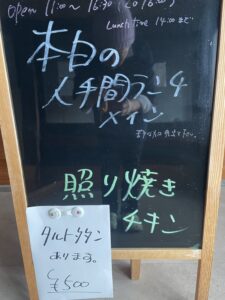 open 11:00~16:30
Lunch time 14:00まで
本日の
人手間ランチ
メイン
照り焼き
チキン
タルトタタン
あります。
¥500